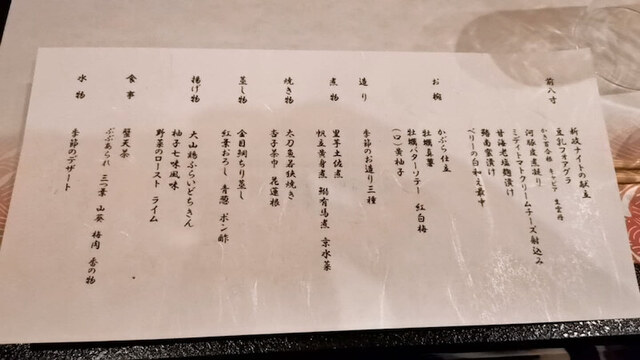 前八寸
新岐ナイトの献立
豆乳フォアグラ
かき百合根 キャビア 生雲丹
河豚生煮凝り
ミディトマトクリームチーズ射込み
甘海老塩麹漬け
鶏南蛮漬け
ベリーの白和え最中
お椀
かぶら仕立
牡蠣真薯
牡蠣バターソテー 紅白梅
(口)黄柚子
造り
季節のお造り三種
煮物
里芋土佐煮
帆立黄身煮 鶏有馬煮 京水菜
焼き物
太刀魚若狭焼き
杏子茶巾 花蓮根
蒸し物
金目鯛ちり蒸し
紅葉おろし 青葱 ポン酢
揚げ物
大山鶏ふらいどちきん
柚子七味風味
野菜のロースト ライム
食事
蟹天茶
ぶぶあられ 三つ葉 山葵 梅肉 香の物
水物
季節のデザート